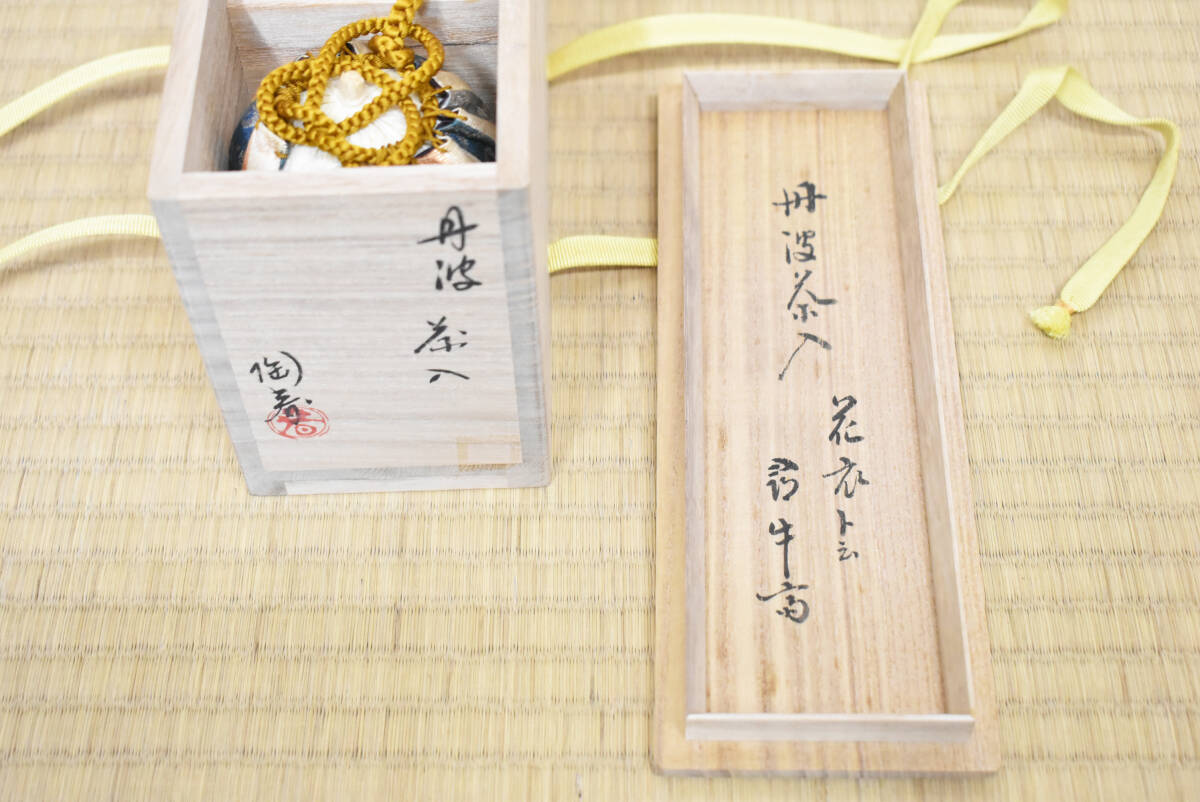 丹波
茶入
陶春
丹波茶入
花衣ト云
尋牛斎